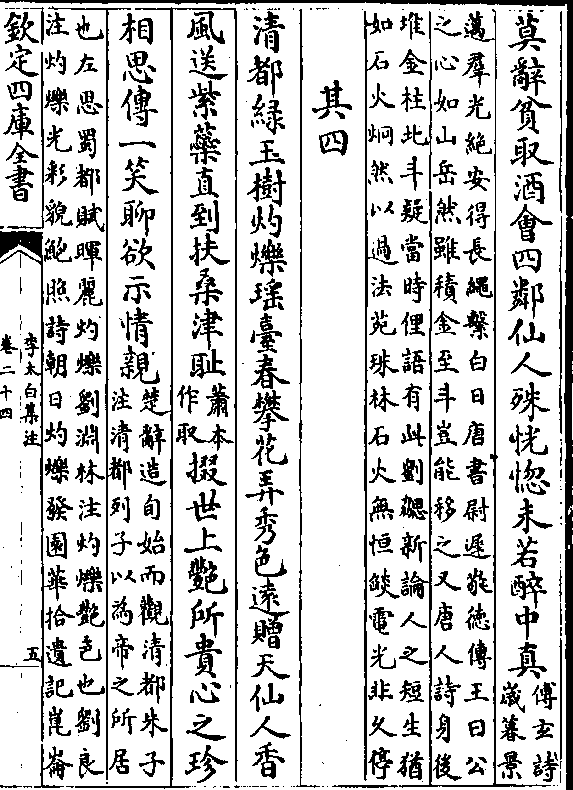 莫辭貧取酒會四鄰仙人殊恍惚未若醉中真傅玄詩
歲暮景
邁羣光絶安得長繩繫白日唐書尉遲敬徳傳王曰公
之心如山岳然雖積金至斗豈能移之又唐人詩身後
堆金柱北斗疑當時俚語有此劉勰新論人之短生猶
如石火炯然以過法苑珠林石火無恒燄電光非久停
其四
清都緑玉樹灼爍瑶臺春攀花弄秀色遠贈天仙人香
風送紫蘂直到扶桑津恥蕭本
作取掇世上艷所貴心之珍
相思傳一笑聊欲示情親楚辭造旬始而觀清都朱子
注清都列子以為帝之所居
也左思蜀都賦暉麗灼爍劉淵林注灼爍艷色也劉良
注灼爍光彩貌鮑照詩朝日灼爍發園華拾遺記崑崙
欽定四庫全書
李太白集注
卷二十四
五